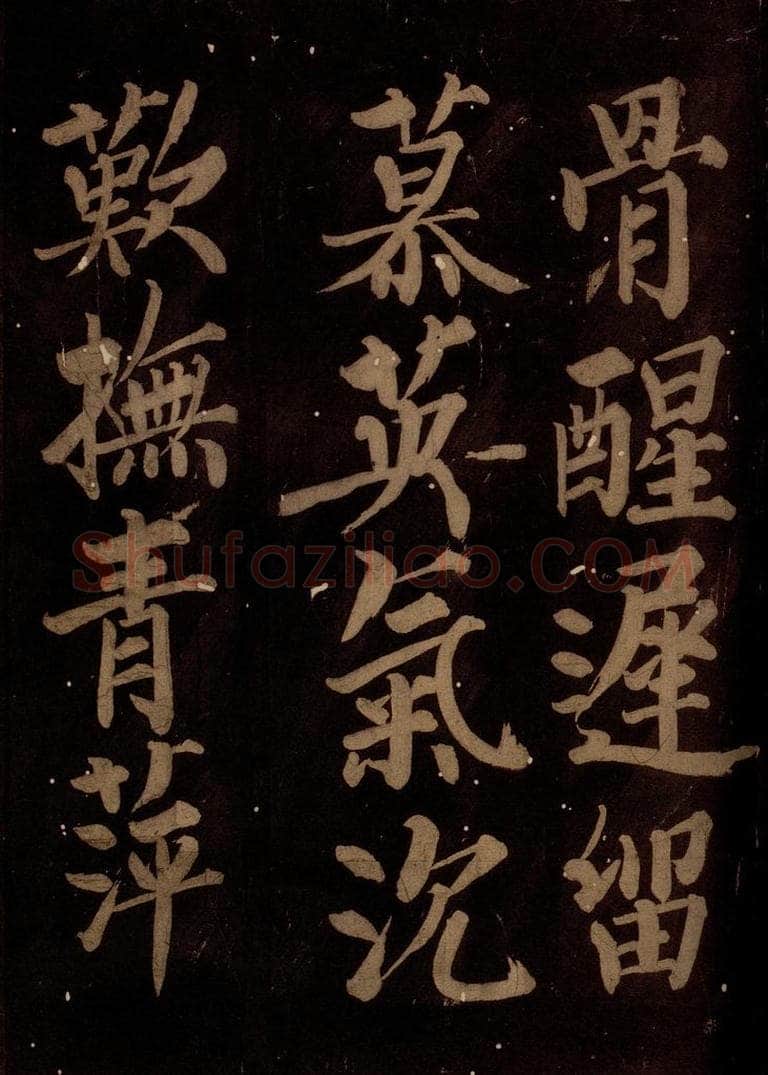 骨醒遲留
慕英氣沉
歎撫青萍
Shufaziliao.COM